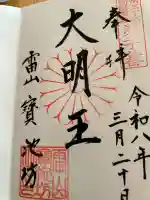 奉拝
令和八年
三月二十日
大明王
雷山寶池坊